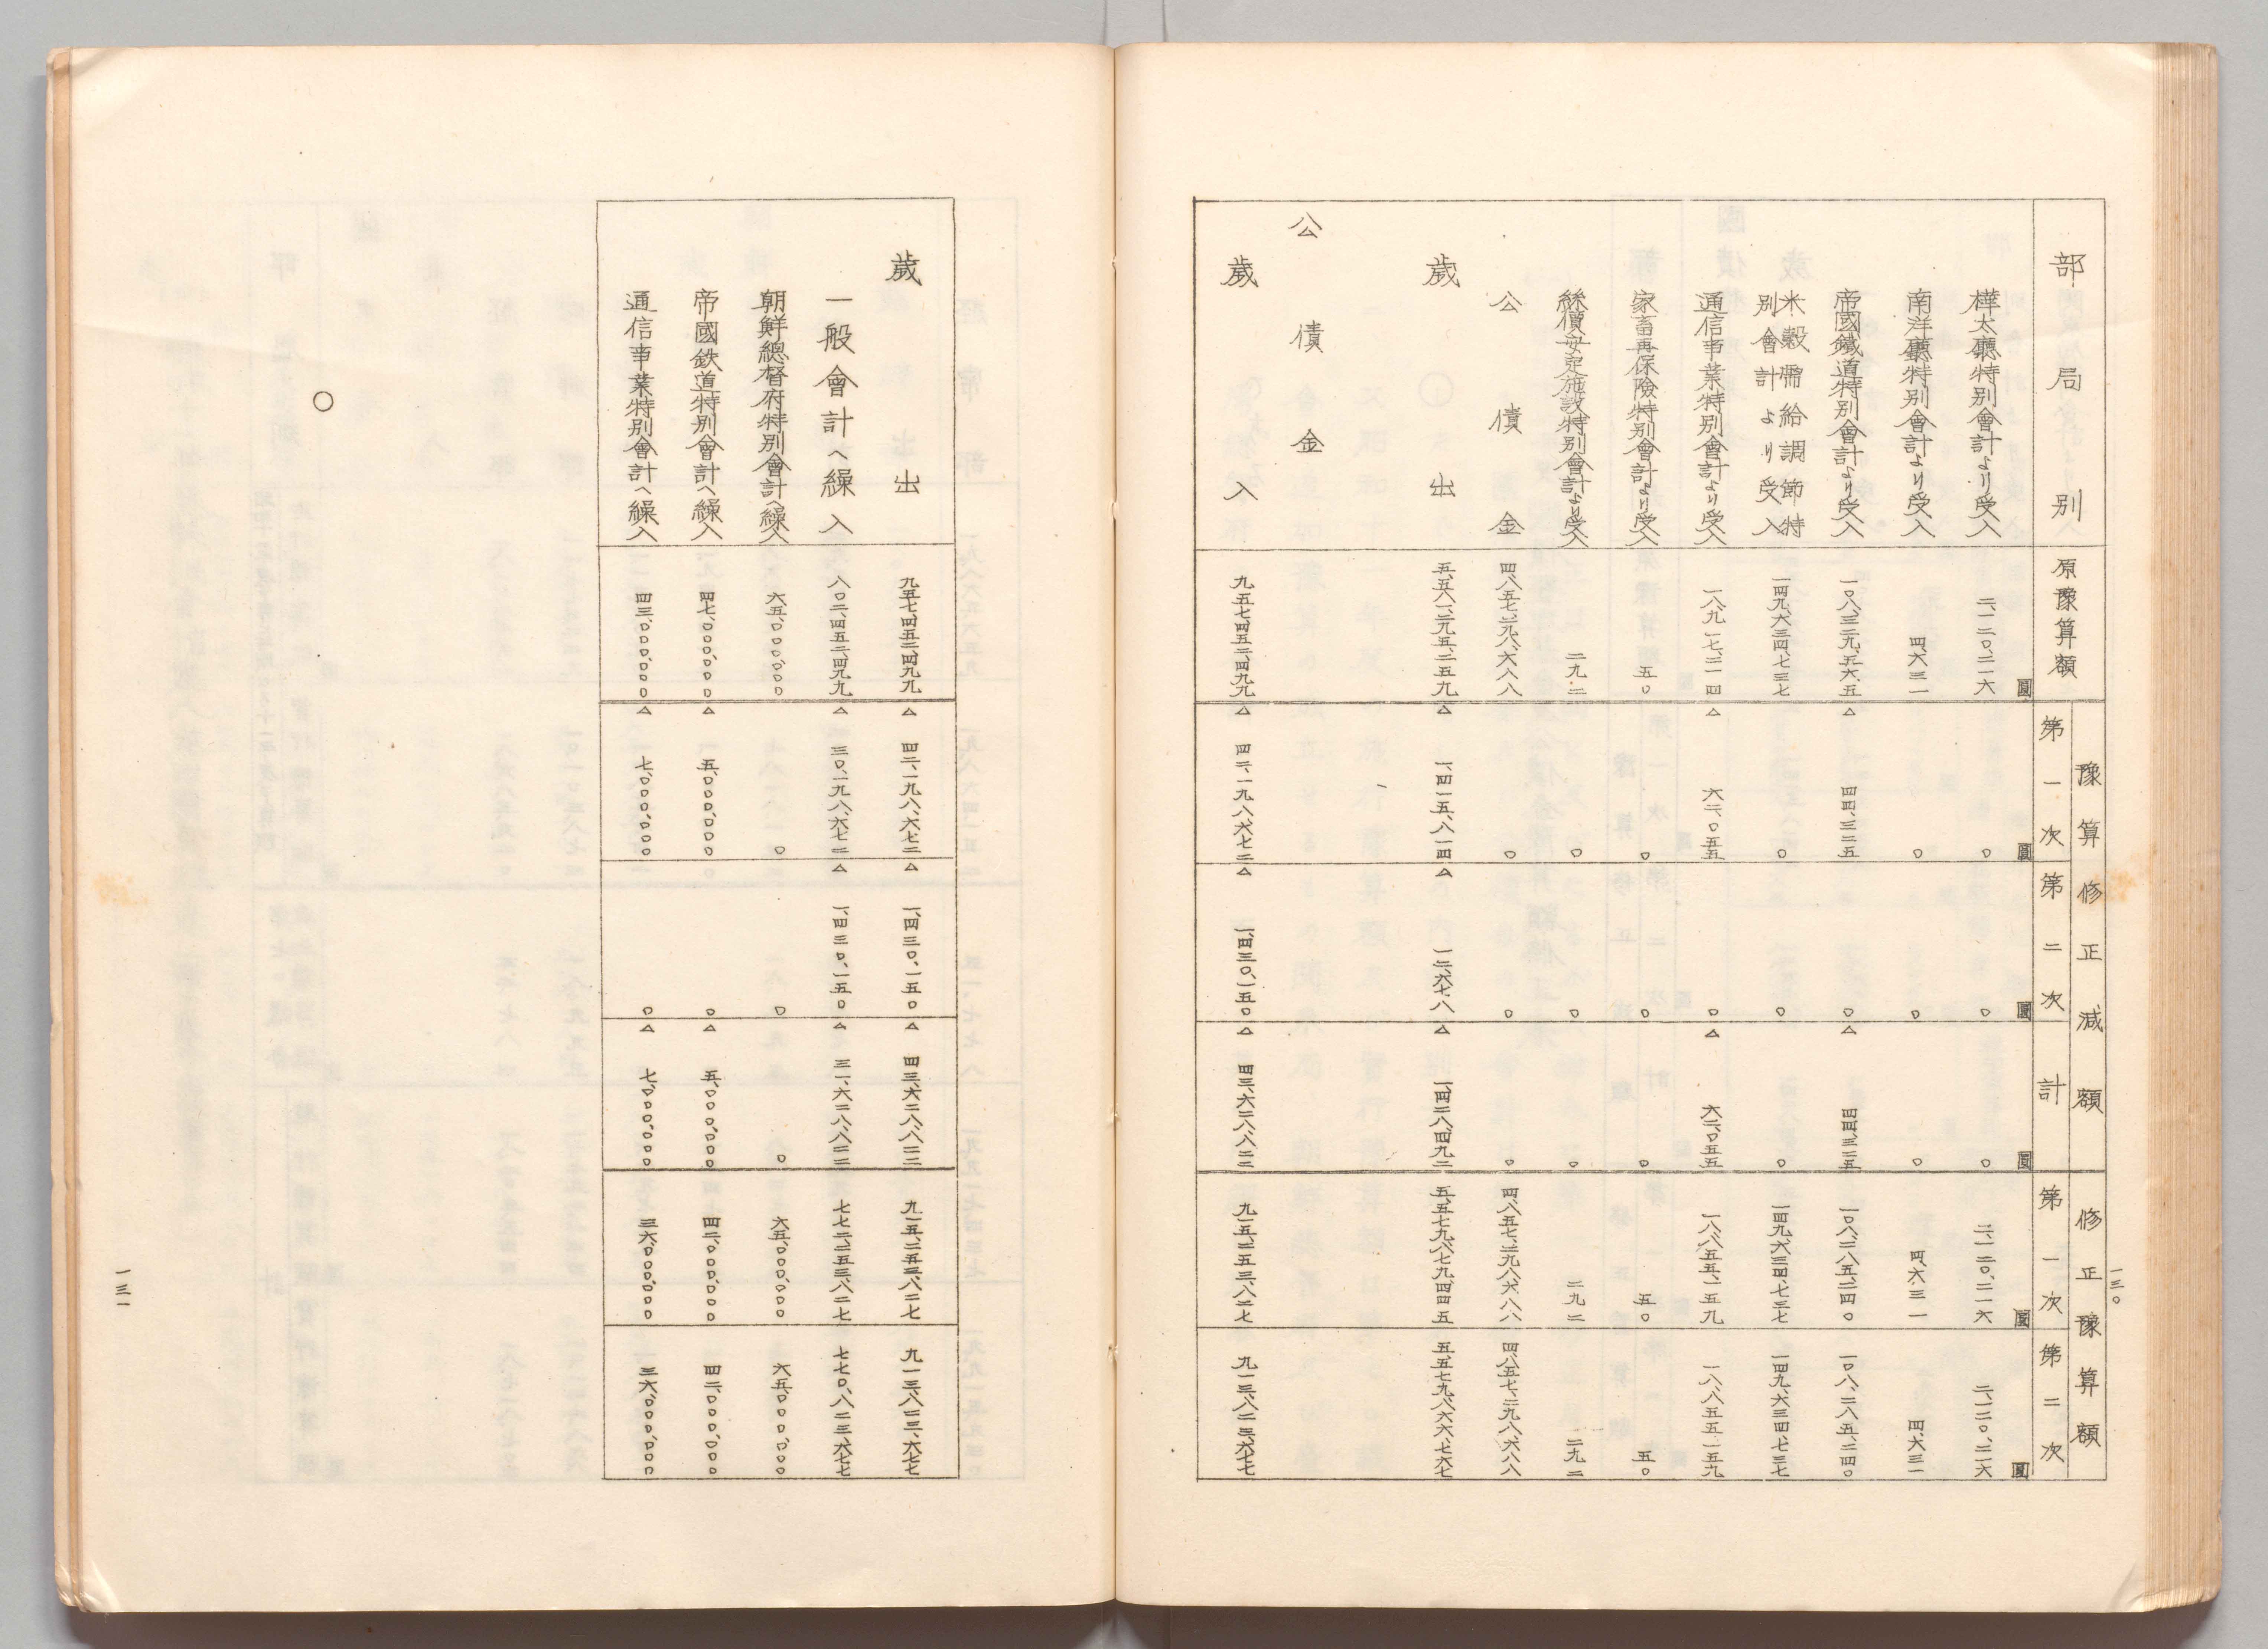 一三〇
豫算修正減額 修正豫算額
部局別 原豫算額 第一次 第二次 計 第一次 第二次
圓 圓 圓 圓 圓 圓
樺太廳特別會計より受入 二、一二〇、二一六 〇 〇 〇 二、一二〇、二一六 二、一二〇、二一六
南洋廳特別會計より受入 四、六三一 〇 〇 〇 四、六三一 四、六三一
帝國鐵道特別會計より受入 一〇八、三二九、五六五 △ 四四、三二五 〇 △ 四四、三二五 一〇八、二八五、二四〇 一〇八、二八五、二四〇
米穀需給調節特
別會計より受入 一四九、六三四、七三七 〇 〇 〇 一四九、六三四、七三七 一四九、六三四、七三七
通信事業特別會計より受入 一八、九一七、二一四 △ 六二、〇五五 〇 △ 六二、〇五五 一八、八五五、一五九 一八、八五五、一五九
家畜再保險特別會計より受入 五〇 〇 〇 〇 五〇 五〇
絲價安定施設特別會計より受入 二九二 〇 〇 〇 二九二 二九二
公債金 四、八五七、二九八、六八八 〇 〇 〇 四、八五七、二九八、六八八 四、八五七、二九八、六八八
歲出 五、五八一、二九五、二五九 △ 一、四一五、八一四 △ 一二、六七八 △ 一、四二八、四九二 五、五七九、八七九、四四五 五、五七九、八六六、七六七
公債金
歲入 九五七、四五二、四九九 △ 四二、一九八、六七二 △ 一、四三〇、一五〇 △ 四三、六二八、八二二 九一五、二五三、八二七 九一三、八二三、六七七
歲出 九五七、四五二、四九九 △ 四二、一九八、六七二 △ 一、四三〇、一五〇 △ 四三、六二八、八二二 九一五、二五三、八二七 九一三、八二三、六七七
一般會計へ繰入 八〇二、四五二、四九九 △ 三〇、一九八、六七二 △ 一、四三〇、一五〇 △ 三一、六二八、八二二 七七二、二五三、八二七 七七〇、八二三、六七七
朝鮮總督府特別會計へ繰入 六五、〇〇〇、〇〇〇 〇 〇 〇 六五、〇〇〇、〇〇〇 六五、〇〇〇、〇〇〇
帝國鉄道特別會計へ繰入 四七、〇〇〇、〇〇〇 △ 五、〇〇〇、〇〇〇 〇 △ 五、〇〇〇、〇〇〇 四二、〇〇〇、〇〇〇 四二、〇〇〇、〇〇〇
通信事業特別會計へ繰入 四三、〇〇〇、〇〇〇 △ 七、〇〇〇、〇〇〇 〇 △ 七、〇〇〇、〇〇〇 三六、〇〇〇、〇〇〇 三六、〇〇〇、〇〇〇
〇
一三一